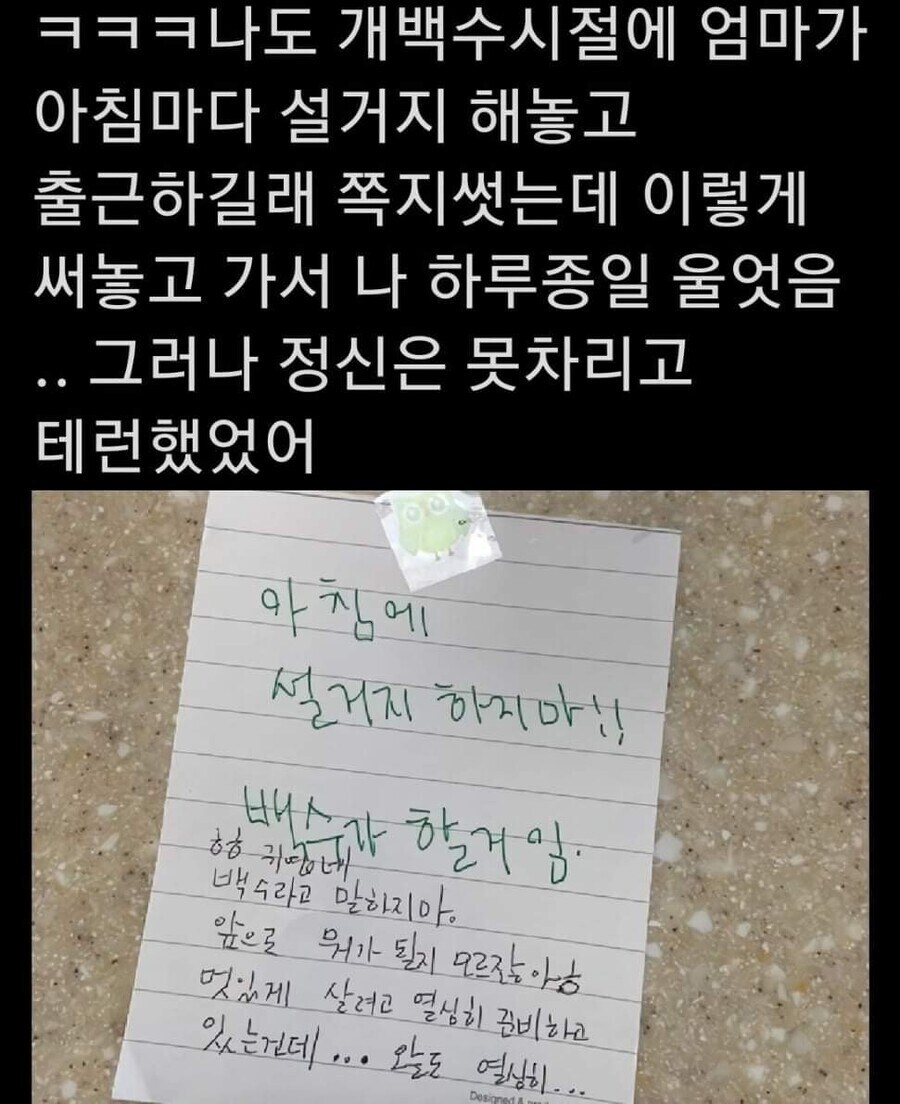 ㅋㅋㅋ나도 개백수시절에 엄마가
아침마다 설거지 해놓고
출근하길래 쪽지썻는데 이렇게
써놓고 가서 나 하루종일 울엇음
.. 그러나 정신은 못차리고
테런했었어
아침에
설거지 하지마!!
백수가 할거임.
ㅎㅎ 귀엽네
백수라고 말하지마.
앞으로 뭐가 될지 모르잖아
멋있게 살려고 열심히 준비하고
있는건데... 오늘도 열심히...
Designed &